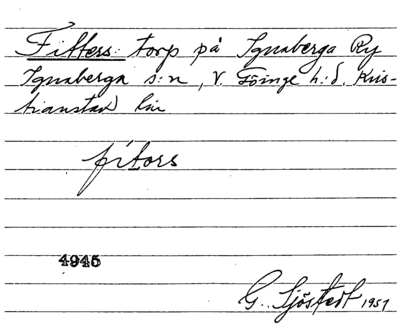 Fitters: torp på Ignaberga Ry
Ignaberga s:n, V. Göinge h:d. Kris-
tianstad län
fítors
4945
G. Sjöstedt 1951